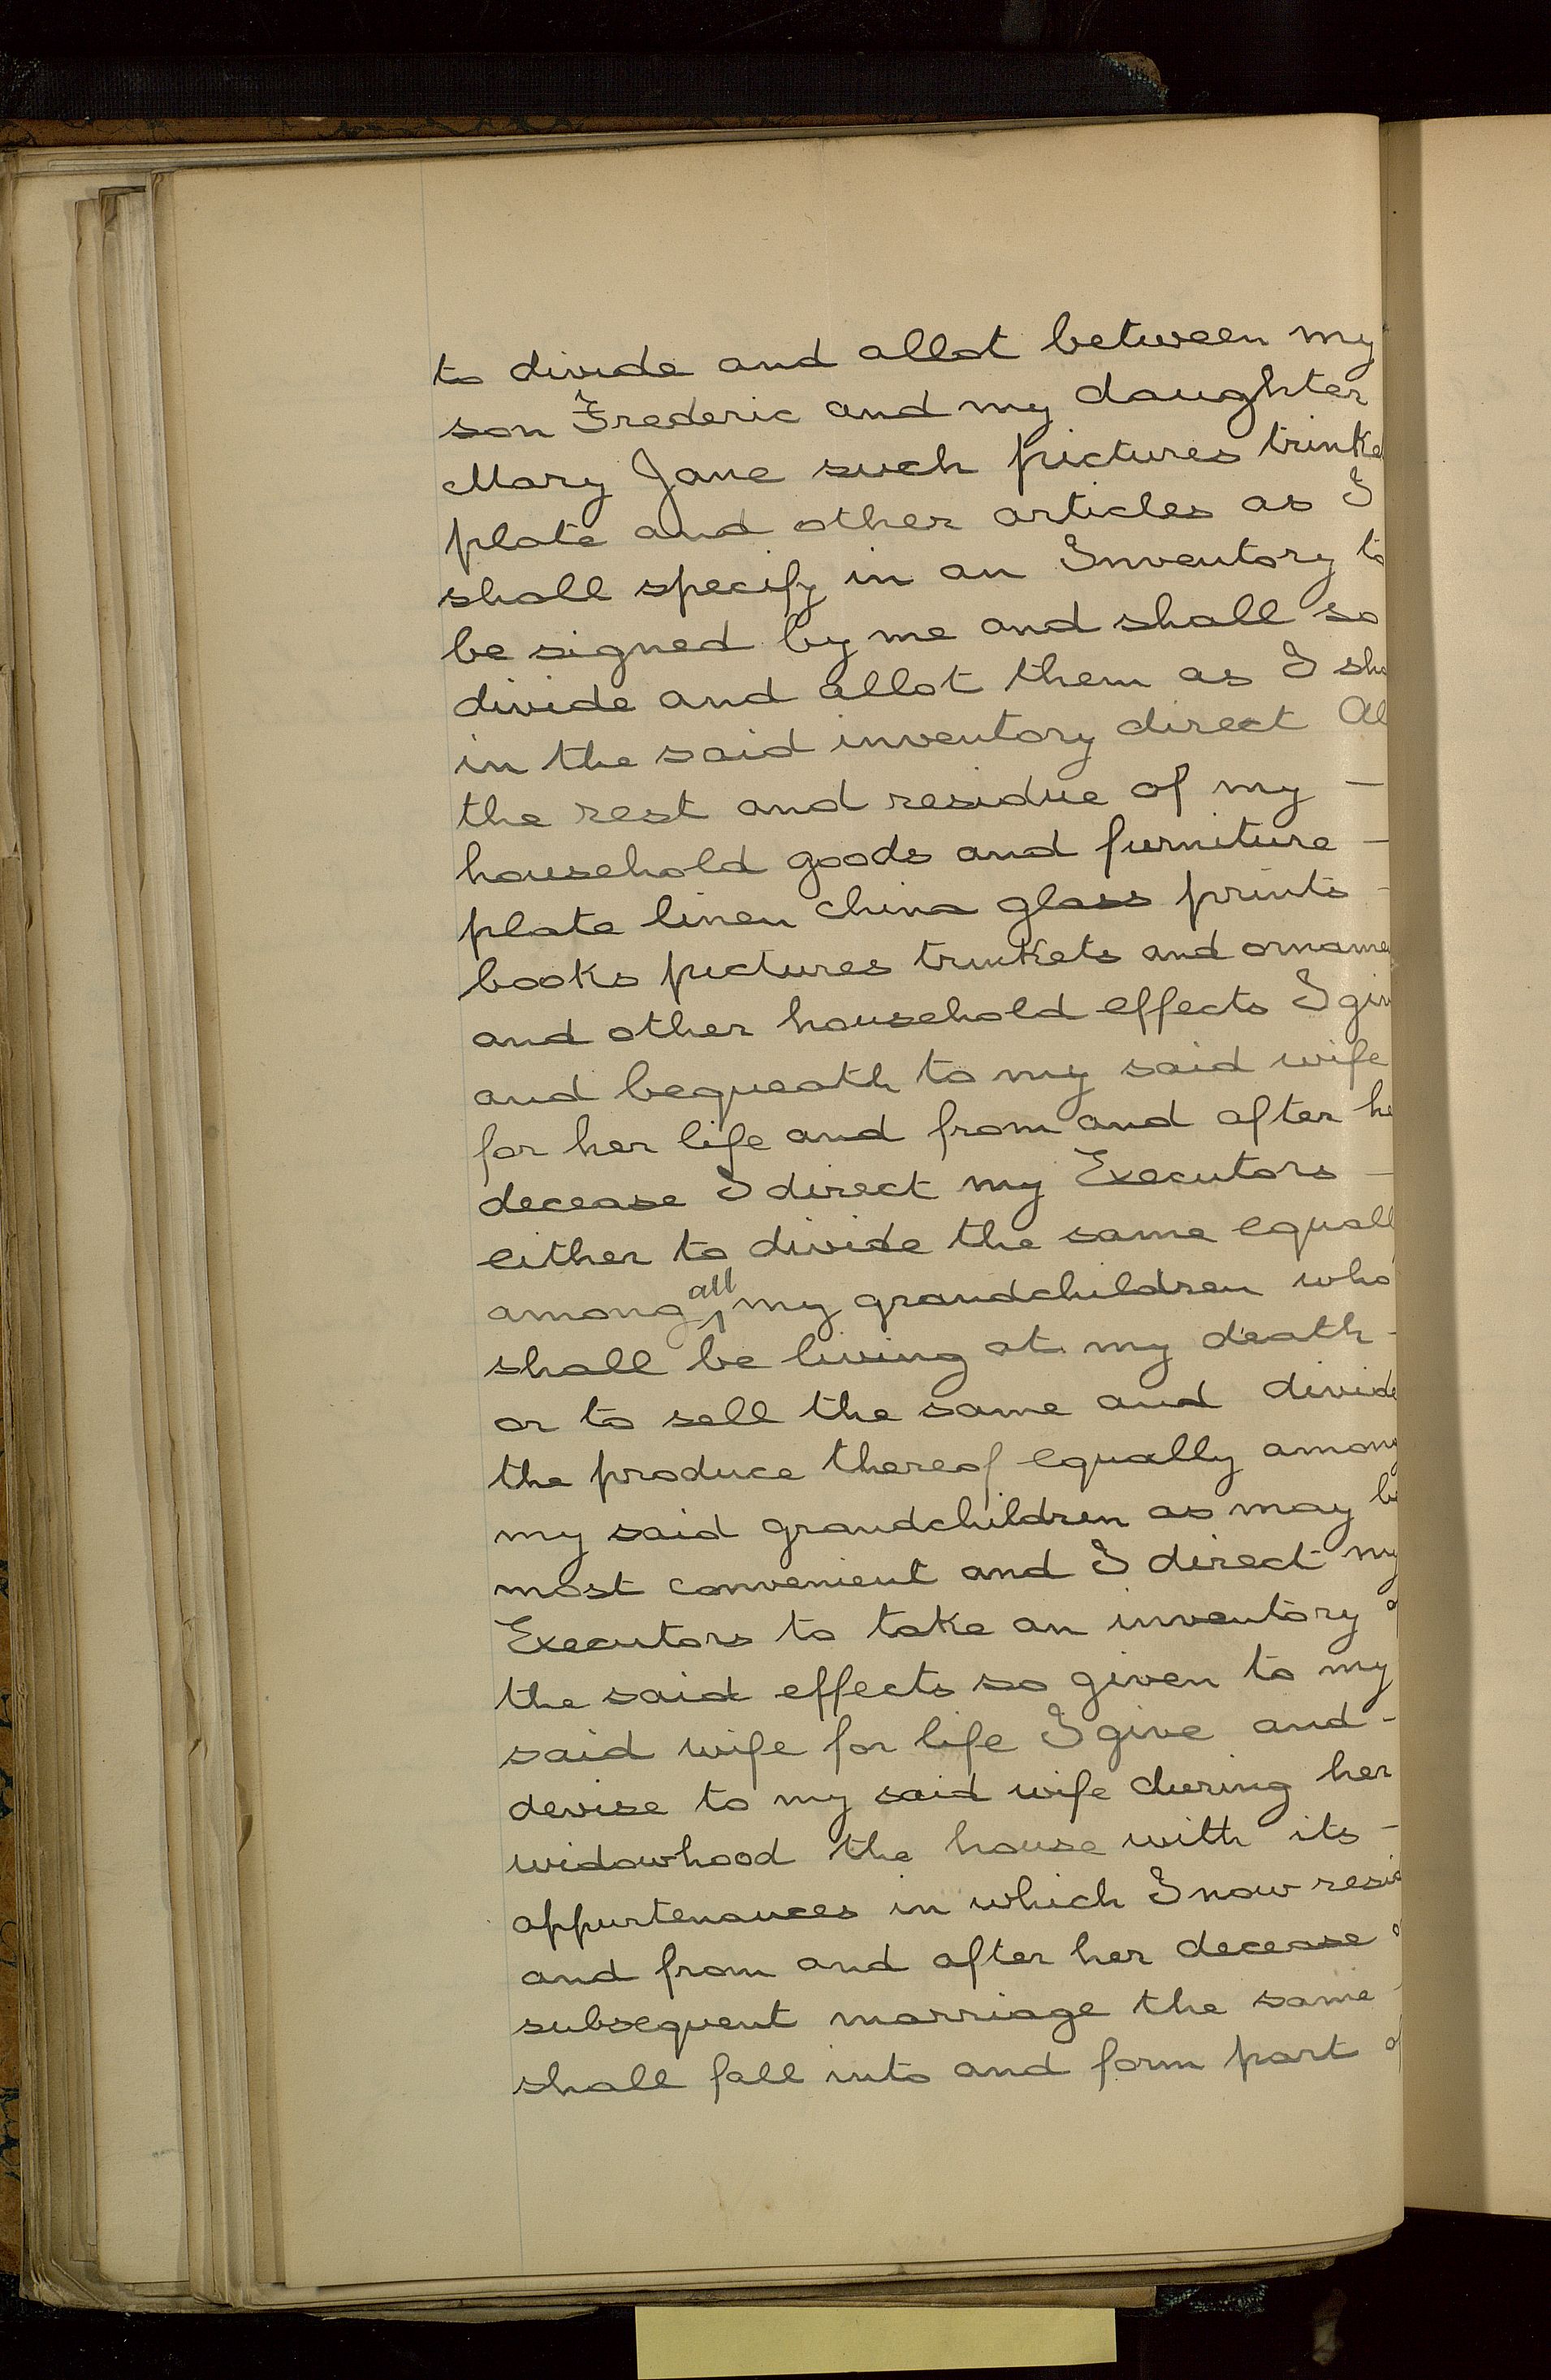 to divide and allot between my
son Frederic and my daughter
Mary Jane such pictures trinke
plate and other articles as I
shall specify in an Inventory to
be signed by me and shall so
divide and allot them as I sha
in the said inventory direct Al
the rest and residue of my —
household goods and furniture —
plate linen china glass prints -
books pictures trinkets and orname
and other household effects I giv
and bequeath to my said wife
for her life and from and after he
decease I direct my Executors —
either to divide the same equall
among all my grandchildren who
shall be living at my death -
or to sell the same and divide
the produce thereof equally among
my said grandchildren as may be
most convenient and I direct my
Executors to take an inventory o
the said effects so given to my
said wife for life I give and -
devise to my said wife during her
widowhood the house with its -
appurtenances in which I now resid
and from and after her decease o
subsequent marriage the same -
shall fall into and form part of